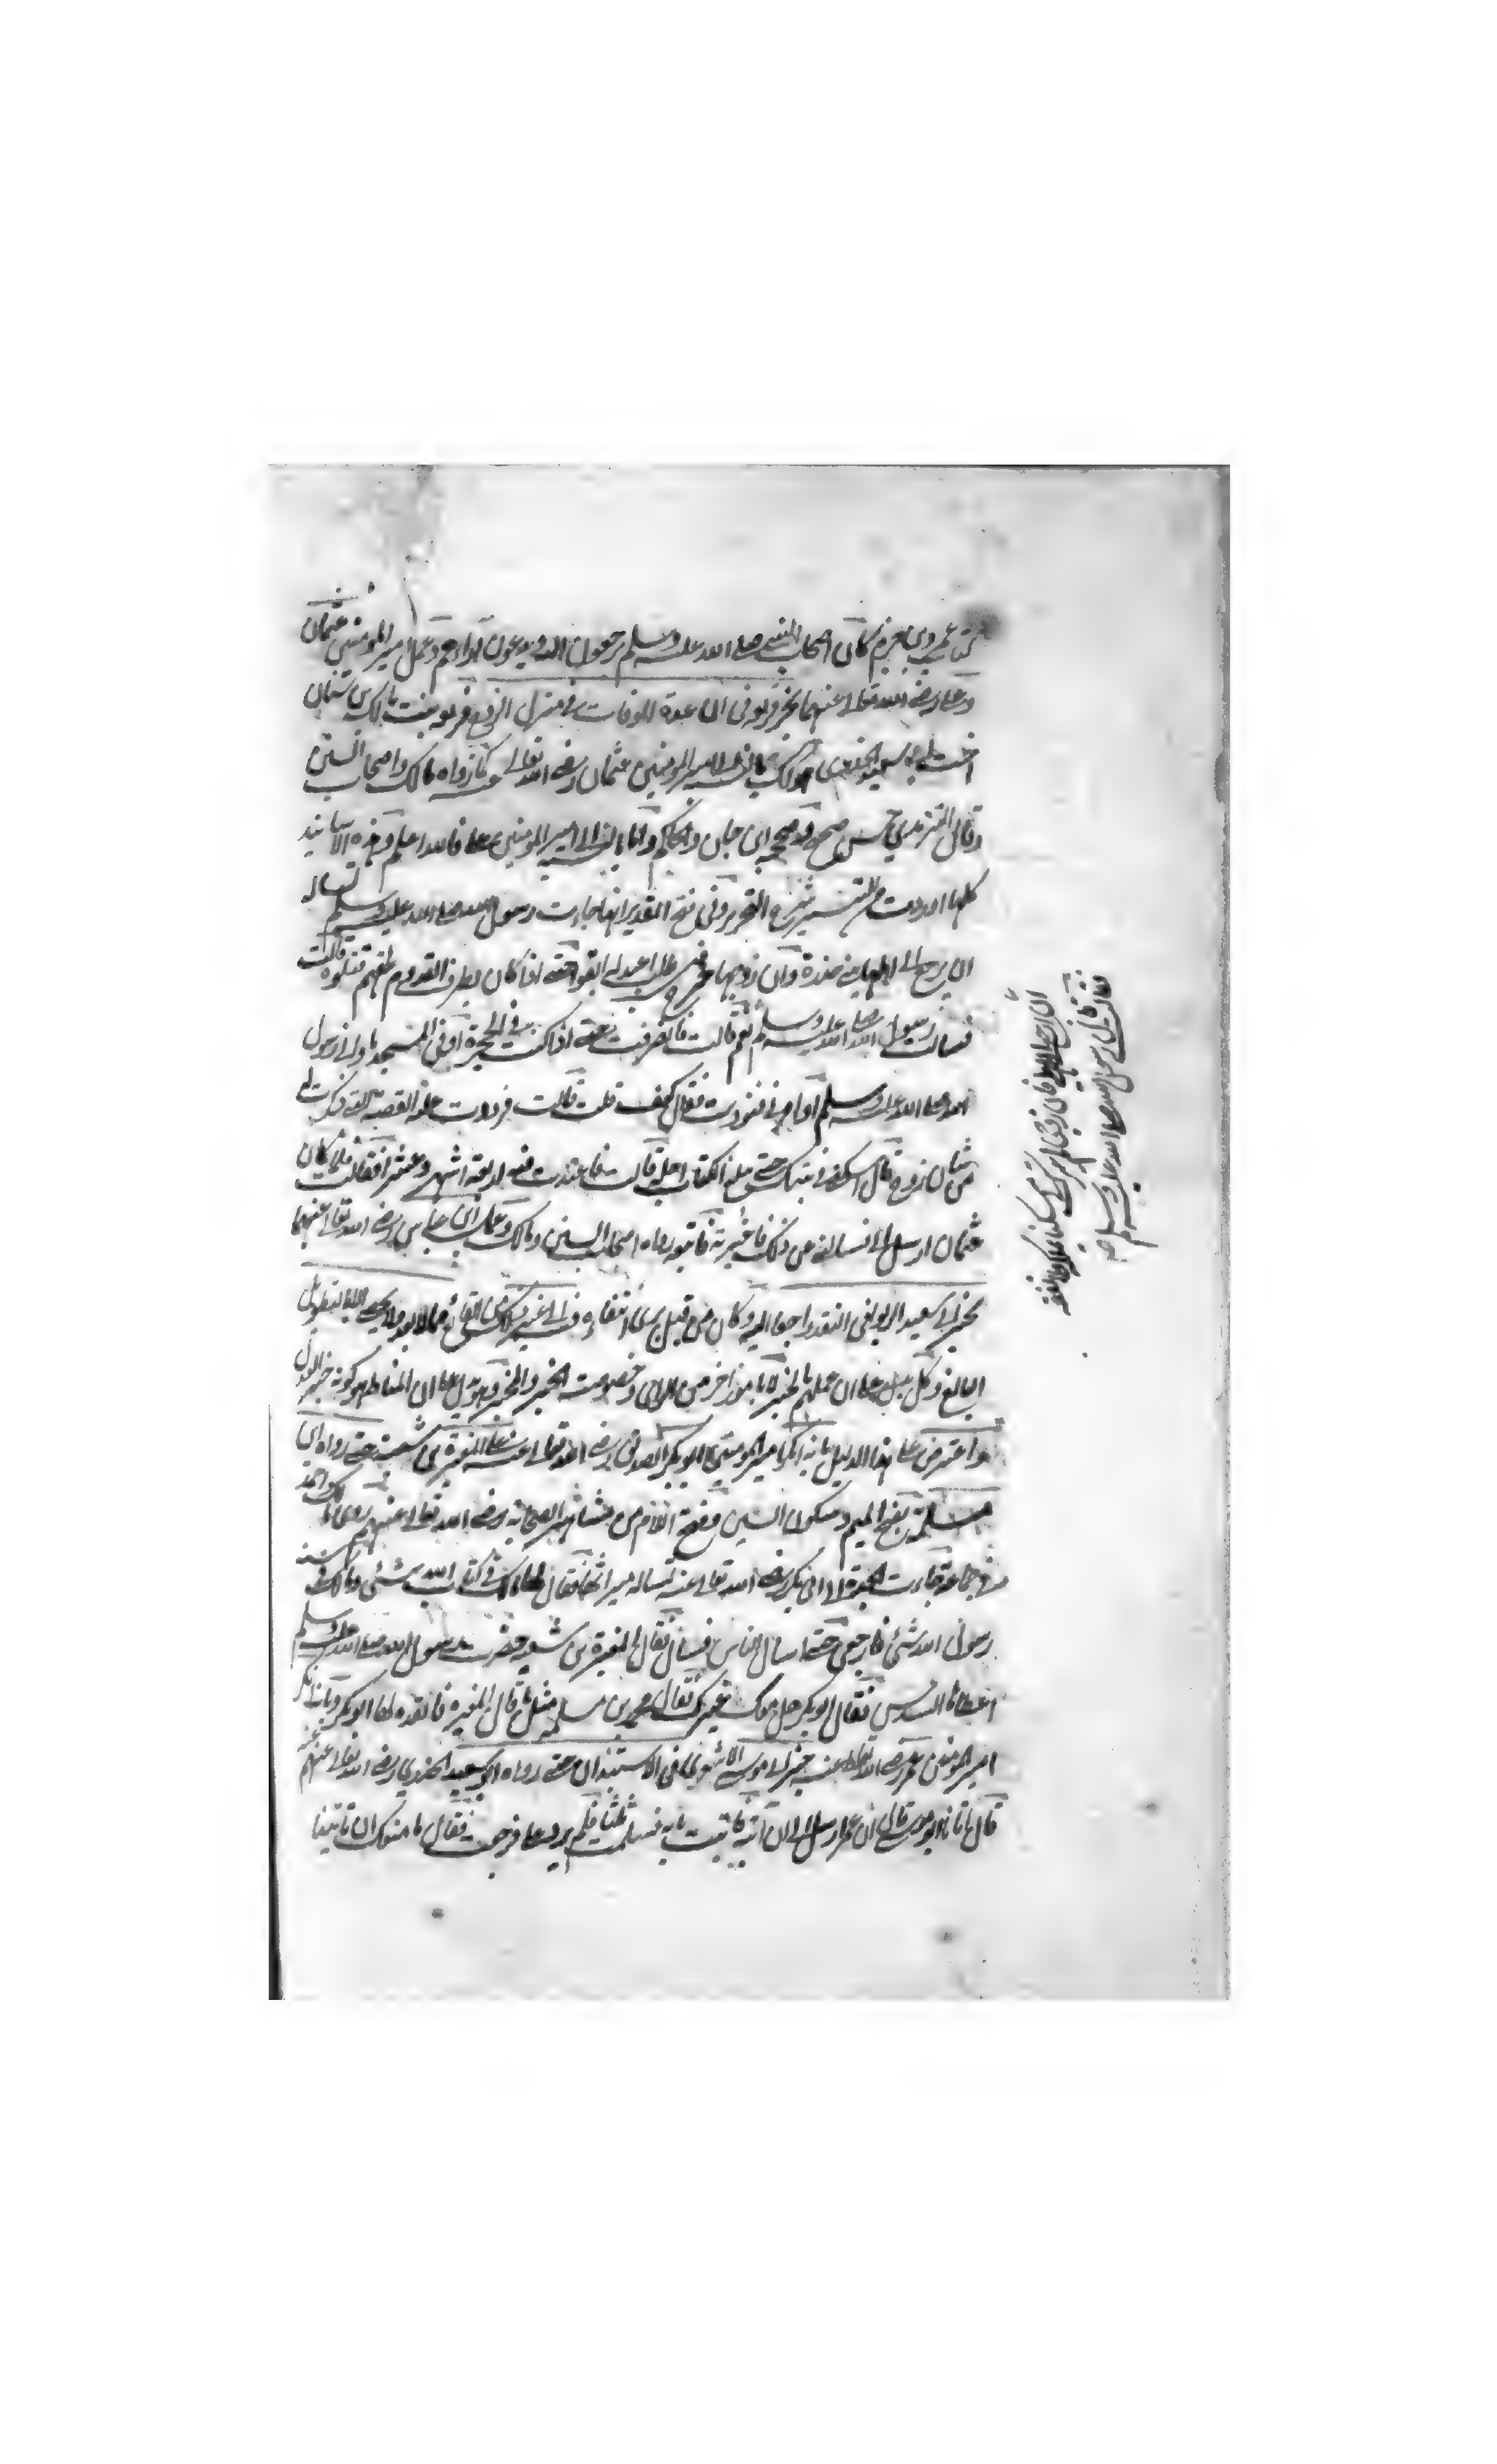 كتاب عمرو بن حزم كان اصحاب النبي صلى الله عليه وسلم يرجعون اليه ويدعون آراءهم وعمل امير المؤمنين عثمان
وعلي رضي الله تعالى عنهما بخبر فريعة في ان عدة الوفات في منزل الزوج فريعة بنت مالك بن سنان
اخت ابي سعيد الخدري امير المؤمنين عثمان رضي الله تعالى عنه كما رواه مالك واصحاب السنن
وقال الترمذي حسن صحيح وصححه ابن حبان والحاكم واما بالنسبة الى امير المؤمنين علي فالله اعلم وهذه الاسانيد
كلها اوردت من التيسير شرح التحرير وفي فتح القدير انها جاءت رسول الله صلى الله عليه وسلم تسأله
ان يرجع الى اهلها بني خدرة وان زوجها خرج في طلب اعبد له ابقوا حتى اذا كان بطرف القدوم لحقهم فقتلوه قالت
فسألت رسول الله صلى الله عليه وسلم نعم قالت فانصرفت حتى اذا كنت في الحجرة او في المسجد ناداني رسول
الله صلى الله عليه وسلم او امر بي فنوديت فقال كيف قلت قالت فرددت عليه القصة التي ذكرت له
من شأن زوجي قال امكثي في بيتك حتى يبلغ الكتاب اجله قالت فاعتددت فيه اربعة اشهر وعشرا فقالت فلما كان
عثمان ارسل الي فسألني عن ذلك فاخبرته فاتبعه رواه اصحاب السنن ومالك وعمل ابن عباس رضي الله تعالى عنهما
بخبر ابي سعيد الربوا في النقد راجعا اليه وكان من قبل يرى
البالغ وكل يدل على ان عملهم بالخبر لا بامر آخر من خصوصية المخبر والمخبر وهو يدل على ان المناط هو كونه خبر العدل
واعترض على هذا الدليل بانه انكر امير المؤمنين ابو بكر الصديق رضي الله تعالى عنه خبر المغيرة بن شعبة حتى رواه ابن
مسلمة بفتح الميم وسكون السين وفتح اللام من مشاهير الصحابة رضي الله تعالى عنهم روى مالك واحمد
في جماعة جاءت الجدة الى ابي بكر رضي الله تعالى عنه تسأله ميراثها فقال لها ما لك في كتاب الله شئ وما لك في سنة
رسول الله شئ فارجعي حتى اسأل الناس فسأل فقال المغيرة بن شعبة حضرت رسول الله صلى الله عليه وسلم
اعطاها السدس فقال ابو بكر هل معك غيرك فقال محمد بن مسلمة مثل ما قال المغيرة فانفذه لها ابو بكر وانكر
امير المؤمنين عمر رضي الله تعالى عنه خبر ابي موسى الاشعري في الاستيذان حتى رواه ابو سعيد الخدري رضي الله تعالى عنهم
قال اتانا ابو موسى قال ان عمر ارسل الي ان آتيه فاتيت بابه فسلمت ثلثا فلم يرد علي فرجعت فقال ما منعك ان تاتينا
ان ارجع الى اهلي فان زوجي لم يتركني في مسكن يملكه ولا نفقة
فقالت قال رسول الله صلى الله عليه وسلم